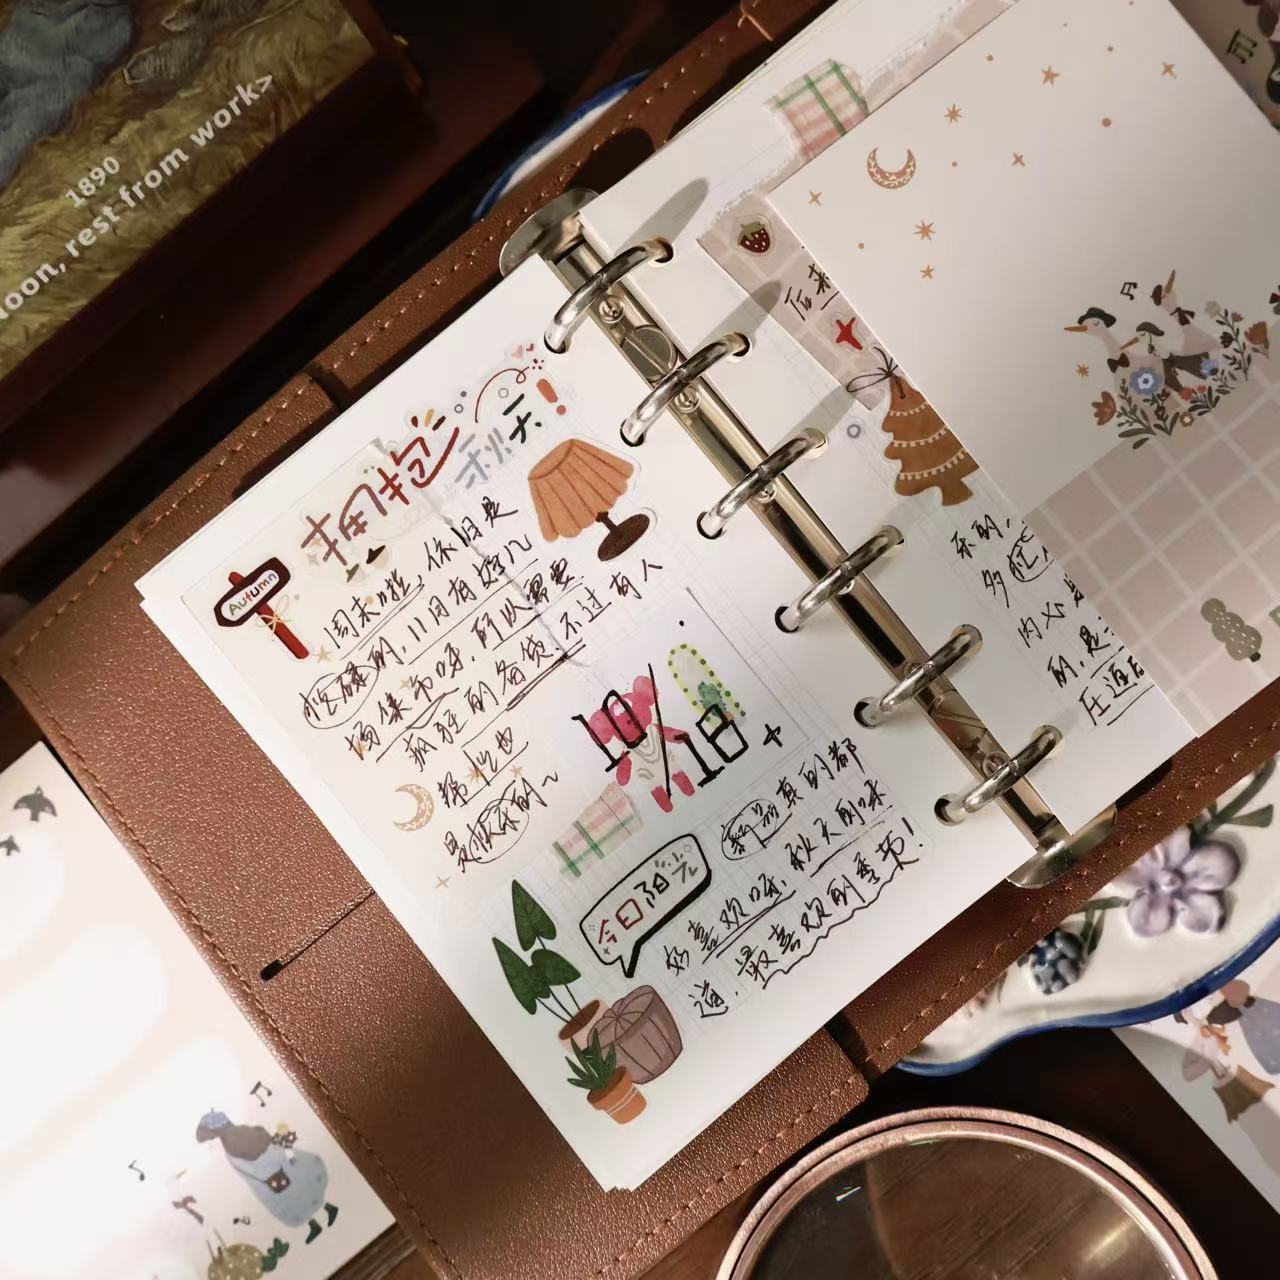 1890
Noon, rest from work>
拥抱秋天!
Autumn
周末啦,依旧是
忙碌的,11月有好几
场集市呀,所以需要
疯狂的备货,不过有人
帮忙也
是快乐的~
10/18
今日阳光
新品真的都
好喜欢呀,秋天的味
道,最喜欢的季节!
后来
乐的,
多忙
内心
的,是
压